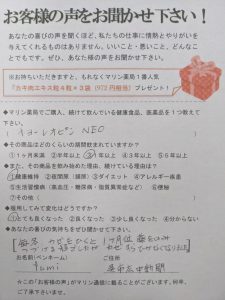 お客様の声をお聞かせ下さい！
あなたの喜びの声を聞くほど、私たちの仕事に情熱とやりがいを
与えてくれるものはありません。いいこと・悪いこと、どんなこ
とでもです。ぜひ、あなた様の声をお聞かせ下さい。
※お持ちいただきますと、もれなくマリン薬局1番人気
『カキ肉エキス粒4粒×3袋（972円相当）プレゼント！
◆マリン薬局でご購入、続けて飲んでいる健康食品、医薬品を1つ教えて
下さい。
イヨーレオピン NEO
◆その商品はどのくらいの期間飲まれていますか？
①1ヶ月未満 ②半年 ③1年以上 ④3年以上 ⑤5年以上
◆また、その商品を飲み始めた理由、継続している理由は？
①健康維持 ②夜間尿（頻尿） ③ダイエット ④アレルギー疾患
⑤生活習慣病（高血圧・糖尿病・脂質異常症など） ⑥腰痛
⑦その他（
◆服用してみて変化はどうですか？
①とても良くなった ②良くなった ③少し良くなった ④分からない
◆あなたの喜びの気持ちをぜひお聞かせ下さい。
毎冬 カゼをひくと 1ヶ月位
お名前（ペンネーム） ご住所
Yumi
☆この「お客様の声」がマリン通信に載ることがございます。何卒、
ご了承下さいませ。